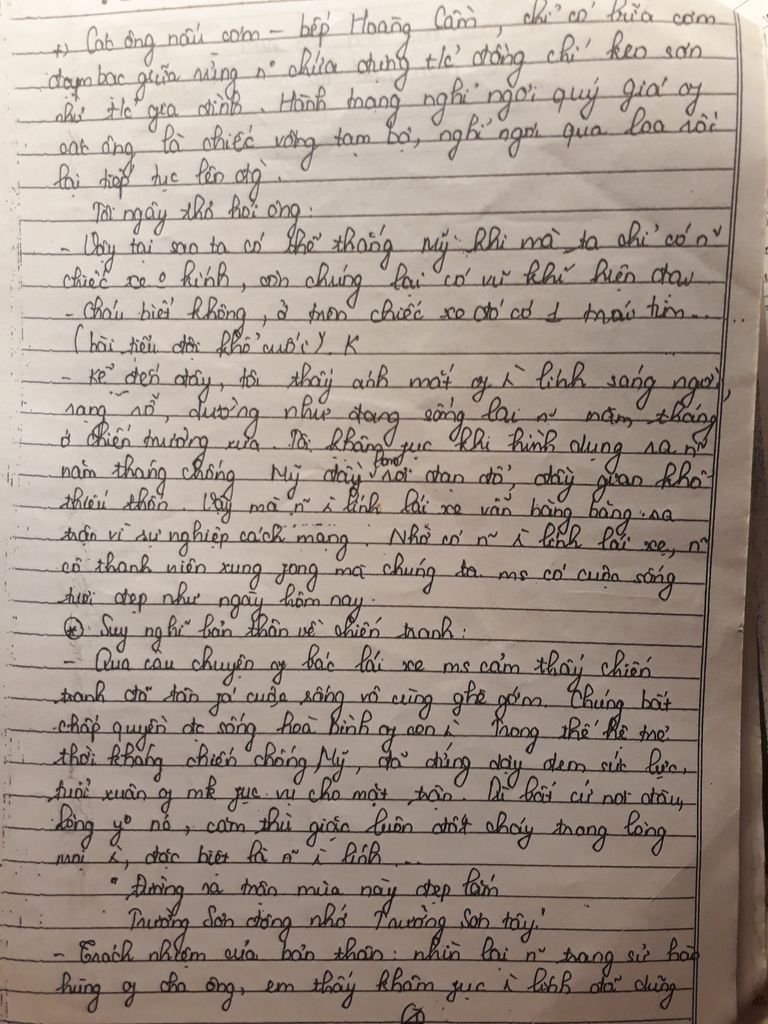 +) Các ông nấu cơm – bếp Hoàng Cầm, chỉ có bữa cơm
đạm bạc giữa rừng n~ chứa đựng t/c đồng chí keo sơn
như t/c gia đình. Hành trang nghỉ ngơi quý giá of
các ông là chiếc võng tạm bợ, nghỉ ngơi qua loa rồi
lại tiếp tục lên đg`.
Tôi ngây thơ hỏi ông:
- Vậy tại sao ta có thể thắng Mỹ khi mà ta chỉ có n~
chiếc xe 0 kính, còn chúng lại có vũ khí hiện đại
- Cháu biết không, ở trên chiếc xe đó có 1 trái tim...
(bài tiểu đội khổ cuối). K
- Kể đến đây, tôi thấy ánh mắt of i` lính sáng ngời,
rạng rỡ, dường như đang sống lại n~ năm tháng
ở chiến trường xưa. Tôi khâm fục khi hình dung ra n~
năm tháng chống Mỹ đầy rơi đạn đổ, đầy gian khổ
thiếu thốn. Vậy mà n~ i` lính lái xe vẫn băng băng ra
trận vì sự nghiệp cách mạng. Nhờ có n~ i` lính lái xe, n~
cô thanh niên xung fong mà chúng ta ms có cuộc sống
tươi đẹp như ngày hôm nay.
* Suy nghĩ bản thân về chiến tranh:
- Qua câu chuyện of bác lái xe ms cảm thấy chiến
tranh đã tàn fá cuộc sống vô cùng ghê gớm. Chúng bất
chấp quyền đc sống hoà bình of con i` Trong thế hệ trẻ
thời kháng chiến chống Mỹ, đã đứng dậy đem sức lực,
tuổi xuân of mk fục vụ cho mặt trận. Dì bất cứ nơi đâu,
lòng yo nó, căm thù giặc luôn đốt cháy trong lòng
mọi i`, đặc biệt là n~ i` lính...
" Đường ra trận mùa này đẹp lắm
Trường Sơn đông nhớ Trường Sơn tây."
- Trách nhiệm của bản thân: nhìn lại n~ trang sử hào
hùng of cha ông, em thấy khâm fục i` lính đã dũng